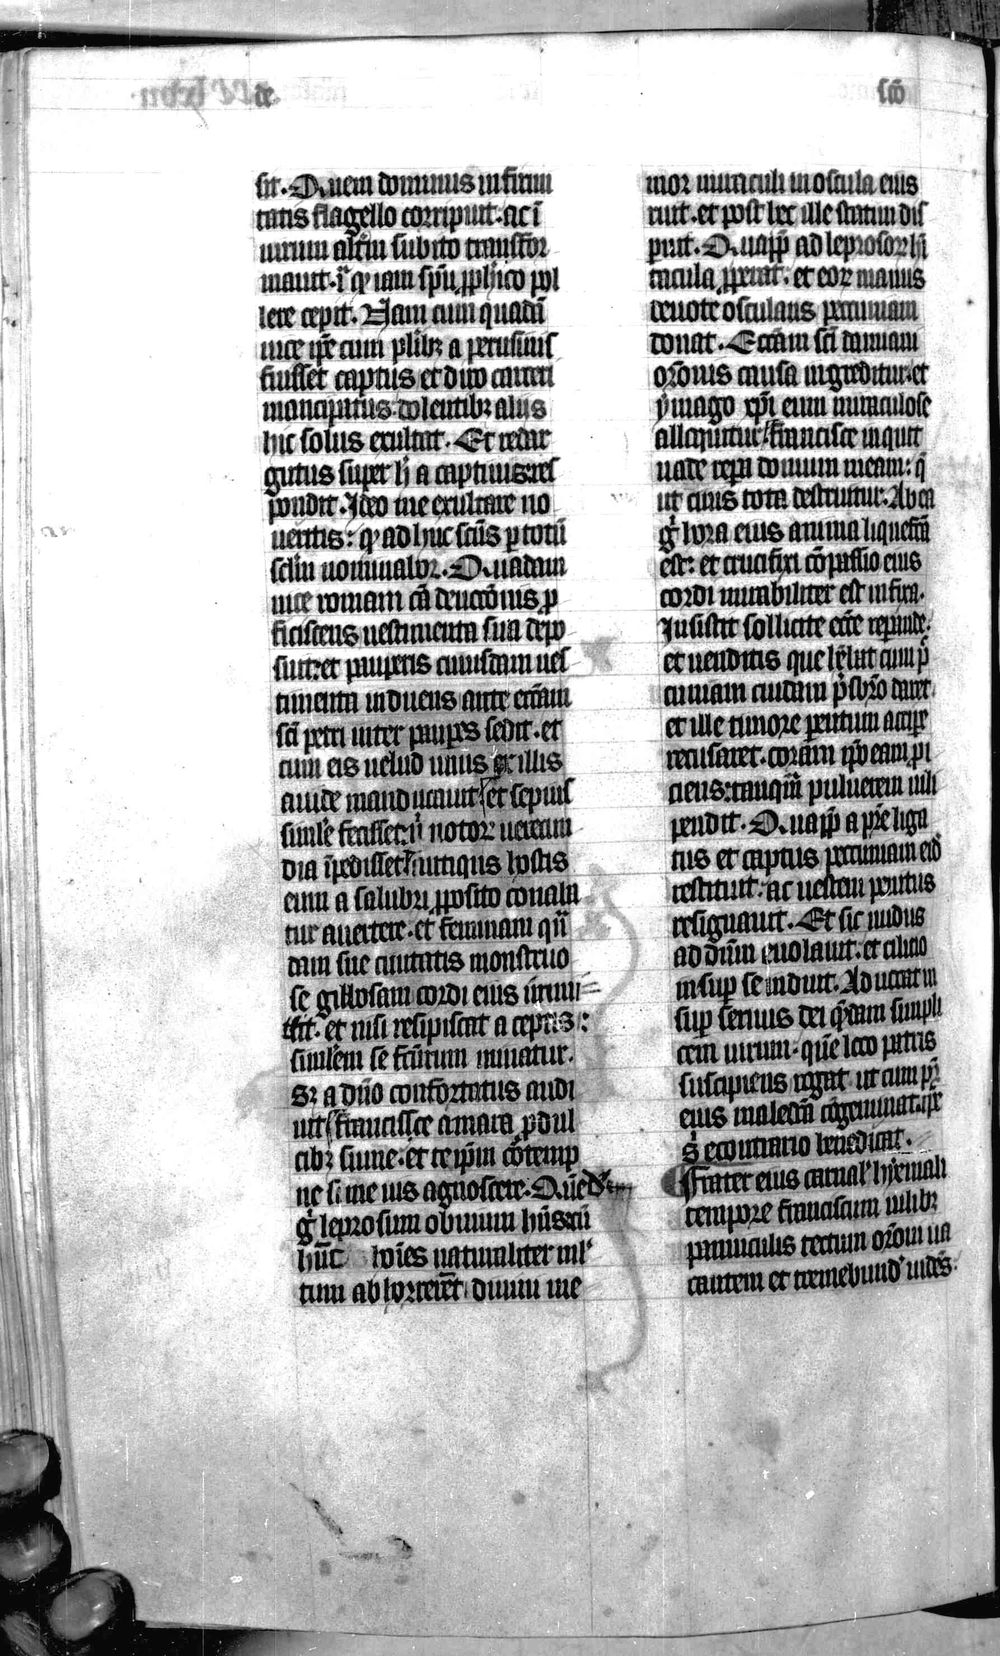 de
scō
sit. Quem dominus infirmi
tatis flagello corripuit. ac ī
uirum altīm subito transfor
mauit. ī qͥ iam spū ꝓphīco pol
lere cepit. Nam cum quadā
uice ip̄e cum plibꝫ a perusinis
fuisset captus et diro carceri
mancipatus. dolentibꝫ aliis
hic solus exultat. Et redar
gutus super h̄ a captiuis: res
pondit. Ideo me exultare no
ueritis: qͥ ad huc scūs ꝑ totū
sclīm uominabor. Quadam
uice romam cā deuocōnis ꝓ
ficiscens uestimenta sua depo
suit: et pauperis cuiusdam ues
timenta induens ante ecc̄am
sc̄i petri inter paupes sedit. et
cum eis uelud unus ex illis
auide manducauit et sepius
simile fecisset: n̄ notoꝝ uerecun
dia īpedisset. Antiqus hostis
eum a salubri ꝓposito conaba
tur auertere. et feminam quā
dam sue ciuitatis monstruo
se gibbosam cordi eius īmmi
ttit. et nisi resipiscat a ceptis:
similem se fc̄urum minatur.
Sꝫ a dn̄o confortatus audi
uit francisce amara ꝓ dul
cibꝫ sume. et te ip̄m cōtemp
ne si me uis agnoscere. Qued
gͥ leprosum obuium hn̄s: cū
hui᷑ hoīes naturaliter ml
tum abhorrerēt diuini me
mor miraculi in oscula eius
ruit. et post hec ille statim dis
paruit. Quapp̄ ad leprosoꝝ hī
tacula ꝓperat. et eoꝝ manus
deuote osculans pecuniam
donat. Ecc̄am sc̄i damiani
or̄onis causa ingreditur. et
ymago xp̄i eum miraculose
alloquitur francisce inquit
uade repa domum meam: q̄
ut cernis tota destruitur. Ab ea
gͥ hora eius anima liquefcā
est: et crucifixi cōpassio eius
cordi mirabiliter est infixa.
Insistit sollicite ecc̄e reparande.
et uenditis que hēbat cum pe
cuniam cuidam p̄sbr̄o daret
et ille timore parentum accipe
recusaret. coram ip̄o eam ꝓi
ciens: tanqm̄ puluerem uili
pendit. Quapp̄ a pr̄e liga
tus et captus pecuniam eid̄
restituit: ac uestem penitus
resignauit. Et sic nudus
ad dn̄m euolauit. et cilicio
insup se induit. Aduocat in
sup seruus dei q̄dam simpli
cem uirum. quē loco patris
suscipiens rogat ut cum pr̄
eius maledcā cōgeminat. ip̄e
ſ econtrario benedicat.
Frater eius carnal hyemali
tempore franciscum uilibꝫ
panniculis tectum or̄oni ua
cantem et tremebund uidēs.